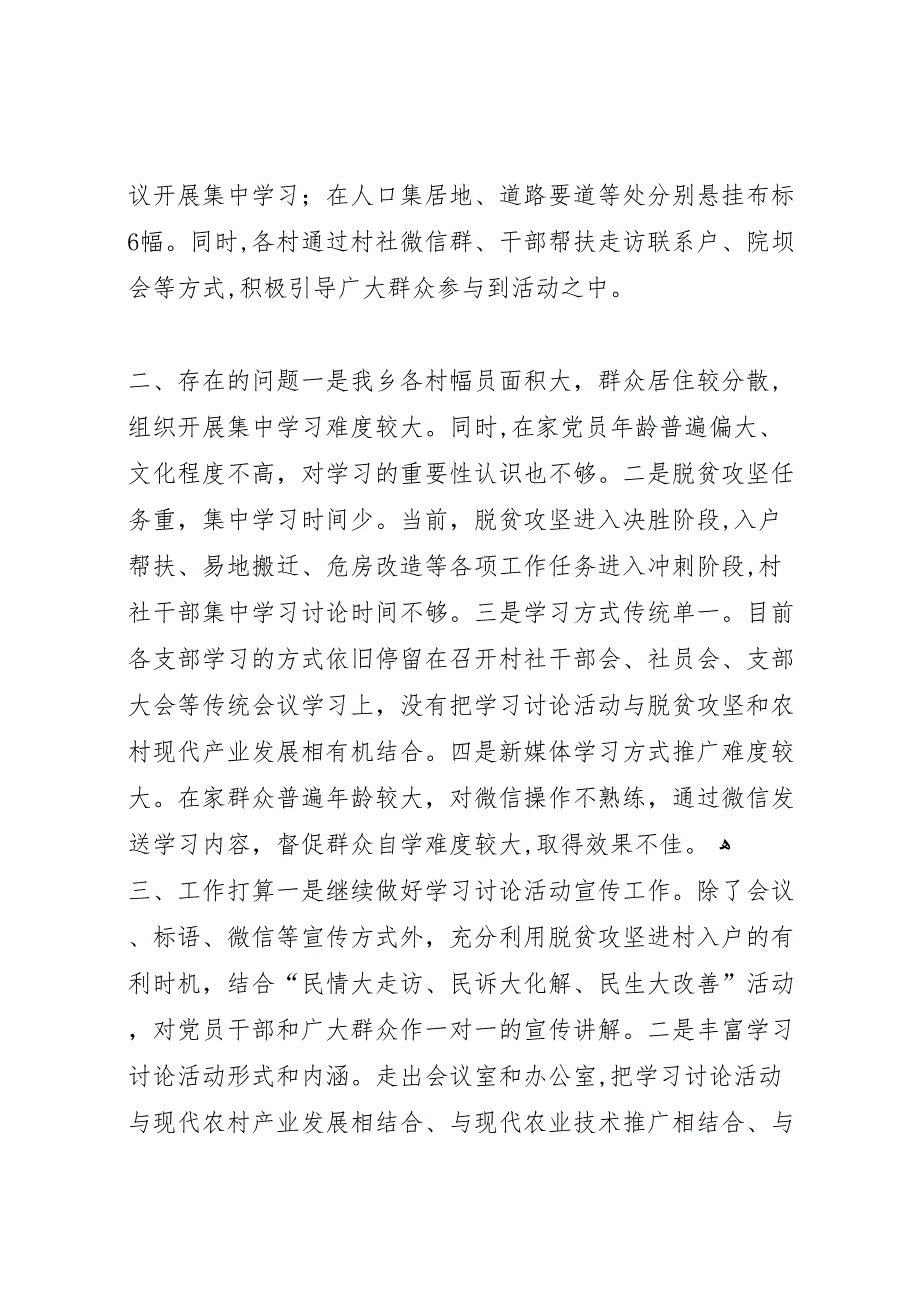 议开展集中学习；在人口集居地、道路要道等处分别悬挂布标
6幅。同时,各村通过村社微信群、干部帮扶走访联系户、院坝
会等方式,积极引导广大群众参与到活动之中。
二、存在的问题一是我乡各村幅员面积大，群众居住较分散,
组织开展集中学习难度较大。同时,在家党员年龄普遍偏大、
文化程度不高，对学习的重要性认识也不够。二是脱贫攻坚任
务重，集中学习时间少。当前，脱贫攻坚进入决胜阶段,入户
帮扶、易地搬迁、危房改造等各项工作任务进入冲刺阶段,村
社干部集中学习讨论时间不够。三是学习方式传统单一。目前
各支部学习的方式依旧停留在召开村社干部会、社员会、支部
大会等传统会议学习上，没有把学习讨论活动与脱贫攻坚和农
村现代产业发展相有机结合。四是新媒体学习方式推广难度较
大。在家群众普遍年龄较大，对微信操作不熟练，通过微信发
送学习内容，督促群众自学难度较大,取得效果不佳。 ﻫ
三、工作打算一是继续做好学习讨论活动宣传工作。除了会议
、标语、微信等宣传方式外，充分利用脱贫攻坚进村入户的有
利时机，结合“民情大走访、民诉大化解、民生大改善”活动
，对党员干部和广大群众作一对一的宣传讲解。二是丰富学习
讨论活动形式和内涵。走出会议室和办公室,把学习讨论活动
与现代农村产业发展相结合、与现代农业技术推广相结合、与